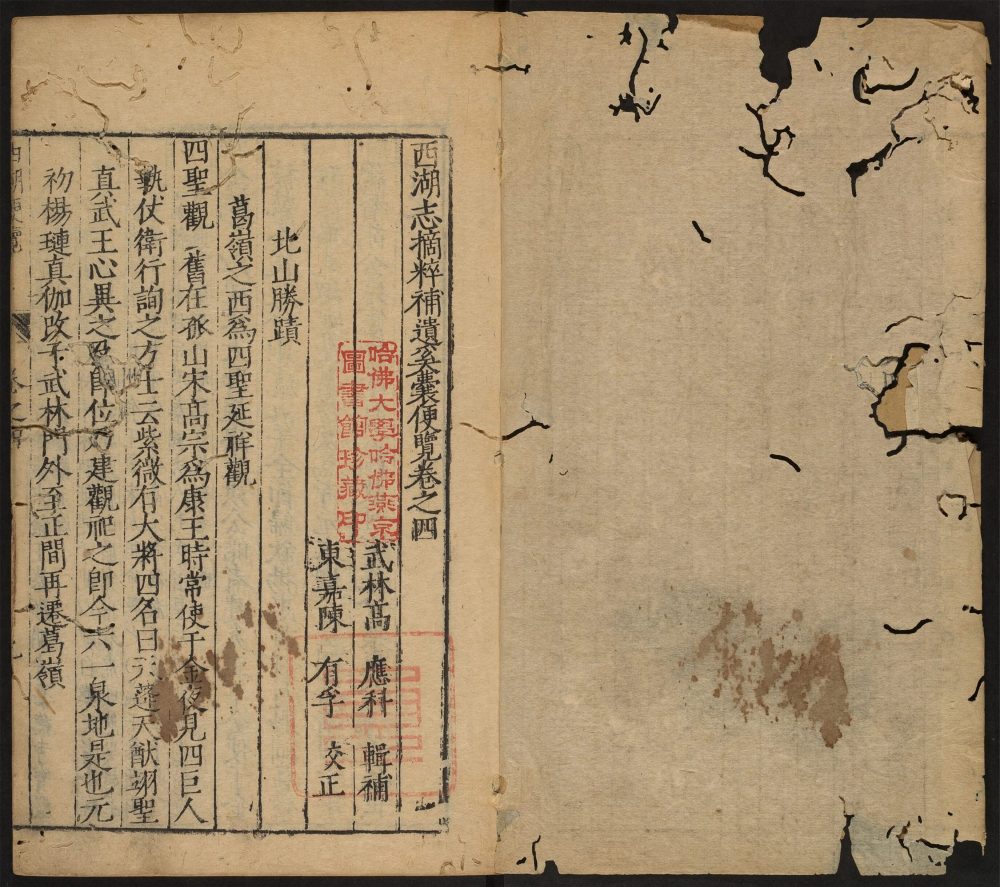 西湖志摘粹補遺奚囊便覽卷之四
武林高 應科 輯補
東嘉陳 有孚 校正
北山勝蹟
葛嶺之西爲四聖延祥觀
四聖觀 舊在孤山宋高宗爲康王時常使于金夜見四巨人
執仗衛行詢之方士云紫微有大將四名曰天蓬天猷翊聖
真武王心異之及即位乃建觀祀之即今六一泉地是也元
初楊璉真伽改于武林門外至正間再遷葛嶺
哈佛大學哈佛燕京
圖書館珍藏印